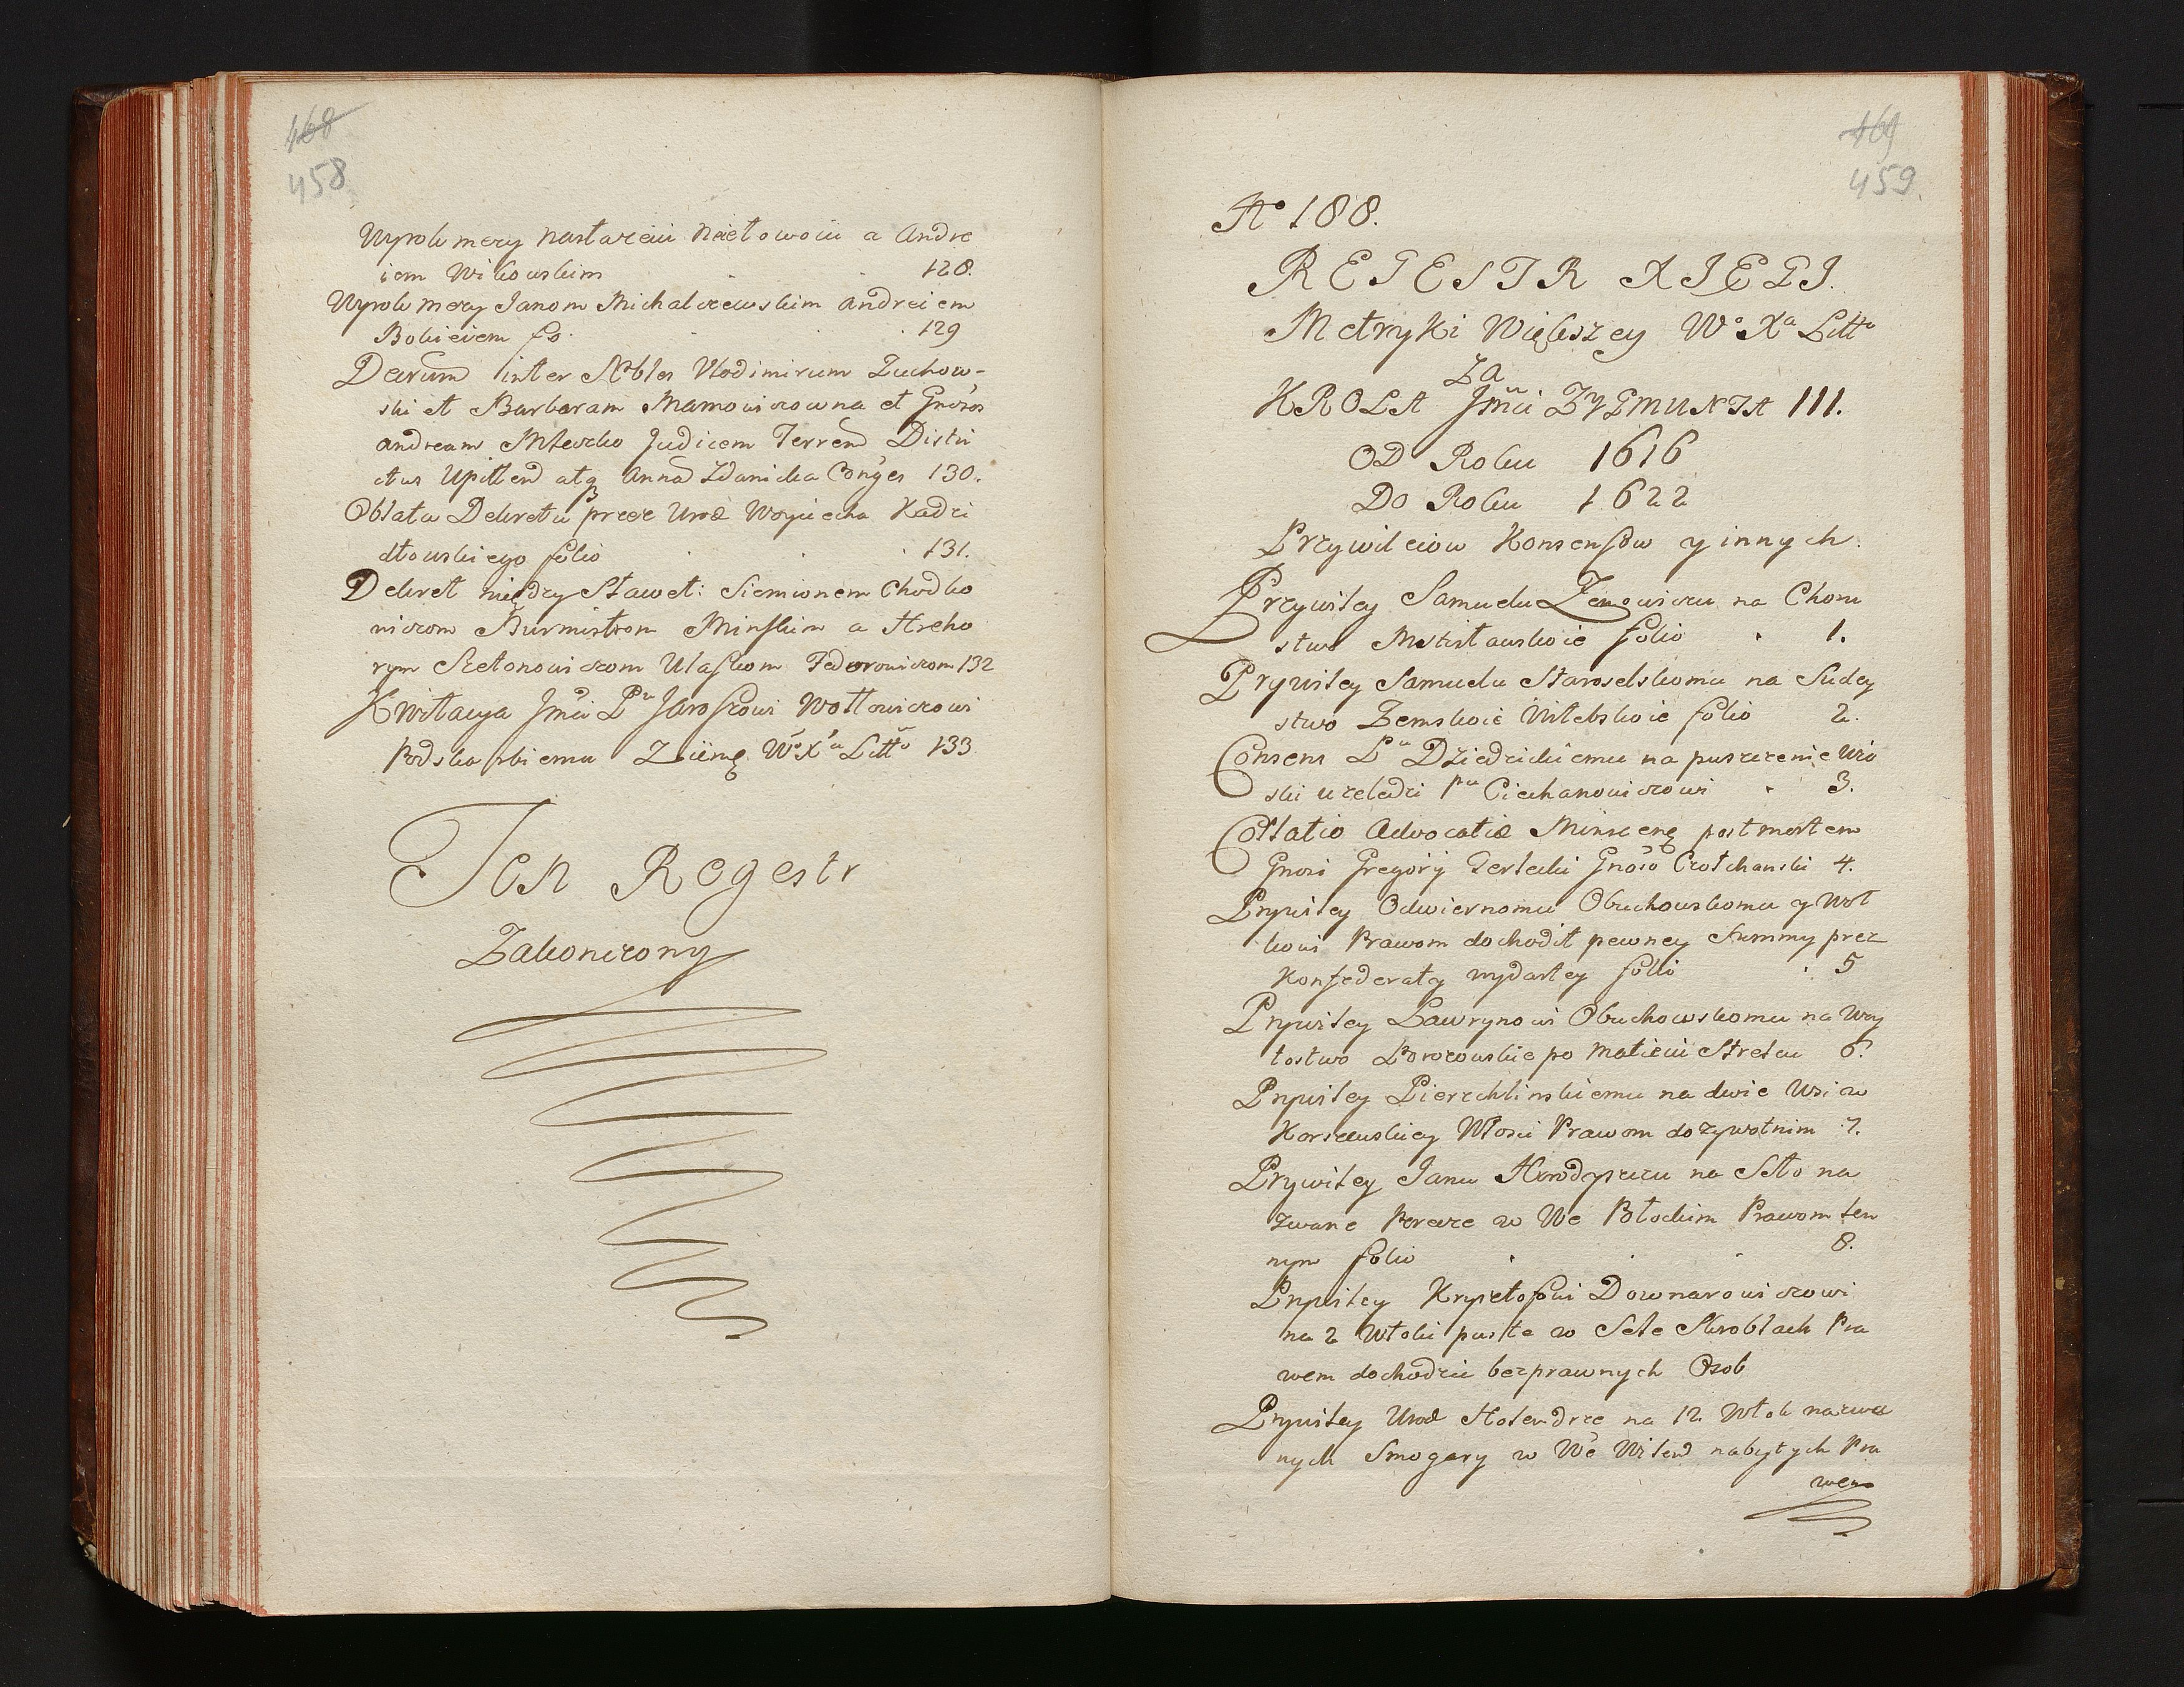 468
458
Wyrok mezy Nastazeiu a Andre
iem Witkowskim 128.
Wyrok mezy Janom Michalczewskim Andreiem
Bokieiem fo. 129
Decrum inter Nobles Vlodimirum Zuchow-
ski et Barbaram Mamowiczowna et Gnosos
Andream Mleczko Judicem Terren Distri
ctus Upitten atq Anna Zdanicka Conges 130.
Oblata Dekretu przez Uro Woyciecha Kadzi
dłowskiego folio 131.
Dekret między Sławet: Siemionem Chodko
wiczom Burmistrom Minskim a Hreho
rym Ulaskom Fedorowiczom 132
Kwitacya Jmci Pu Jaroszowi Wołłowiczowi
Podskarbiemu Ziemę Wo Xa Litto 133
Ten Regestr
Zakonczony
469
459.
No 188.
REGESTR XIĘGI.
Metryki Większey Wo Xa Litto
Za
KROLA Jmci ZYGMUNTA III.
OD Roku 1616
Do Roku 1622
Przywileiow Konsensow y innych.
Przywiley Samuelu Zenowiczu na Choru
stwo Mstisławskoie folio 1.
Prywiley Samuelu Staroselskomu na Sudey
stwo Zemskoie Vitebskoie folio 2.
Consens Pu Dziedzickiemu na puszczenie Wio
ski uzeledzi Pu Ciechanowiczowi 3.
Collatio Advocatiæ Minscenę post mortem
Gnosi Gregorij Terlecki Gnoso Czołchanski 4.
Prywiley Odwiernomu Obuchowskomu y Woł
kowi Prawom dochodit pewney Summy prez
Konfederaty wydartey folio 5
Prywiley Ławrynowi Obuchowskomu na Woy
tostwo po Matieiu Strelcu 6.
Prywiley Pierzchlinskiemu na dwie Wsi w
Włosci Prawom dozywotnim 7.
Prywiley Janu Horodyszczu na Seło na
zwane Porecze w We Połockim Prawom len
nym folio 8.
Prywiley Krysztofowi Downarowiczowi
na 2 Włoki puste w Sele Skroblach Pra
wem dochodzic bezprawnych Osob
Prywiley Urod Holendrze na 12 Włok nazwa
nych Smogary w We Wilen nabytych Pra
wem